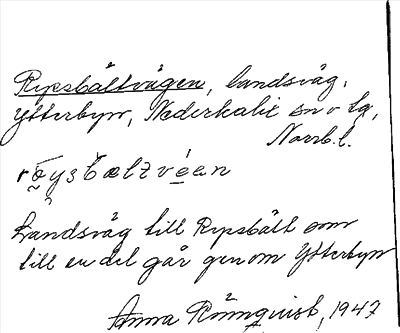 Rypsbältvägen, landsväg,
Ytterbyn, Nederkalix sn o tg,
Norrb. l.
Landsväg till Rypsbält som
till en del går genom Ytterbyn
Anna Rönnqvist, 1947